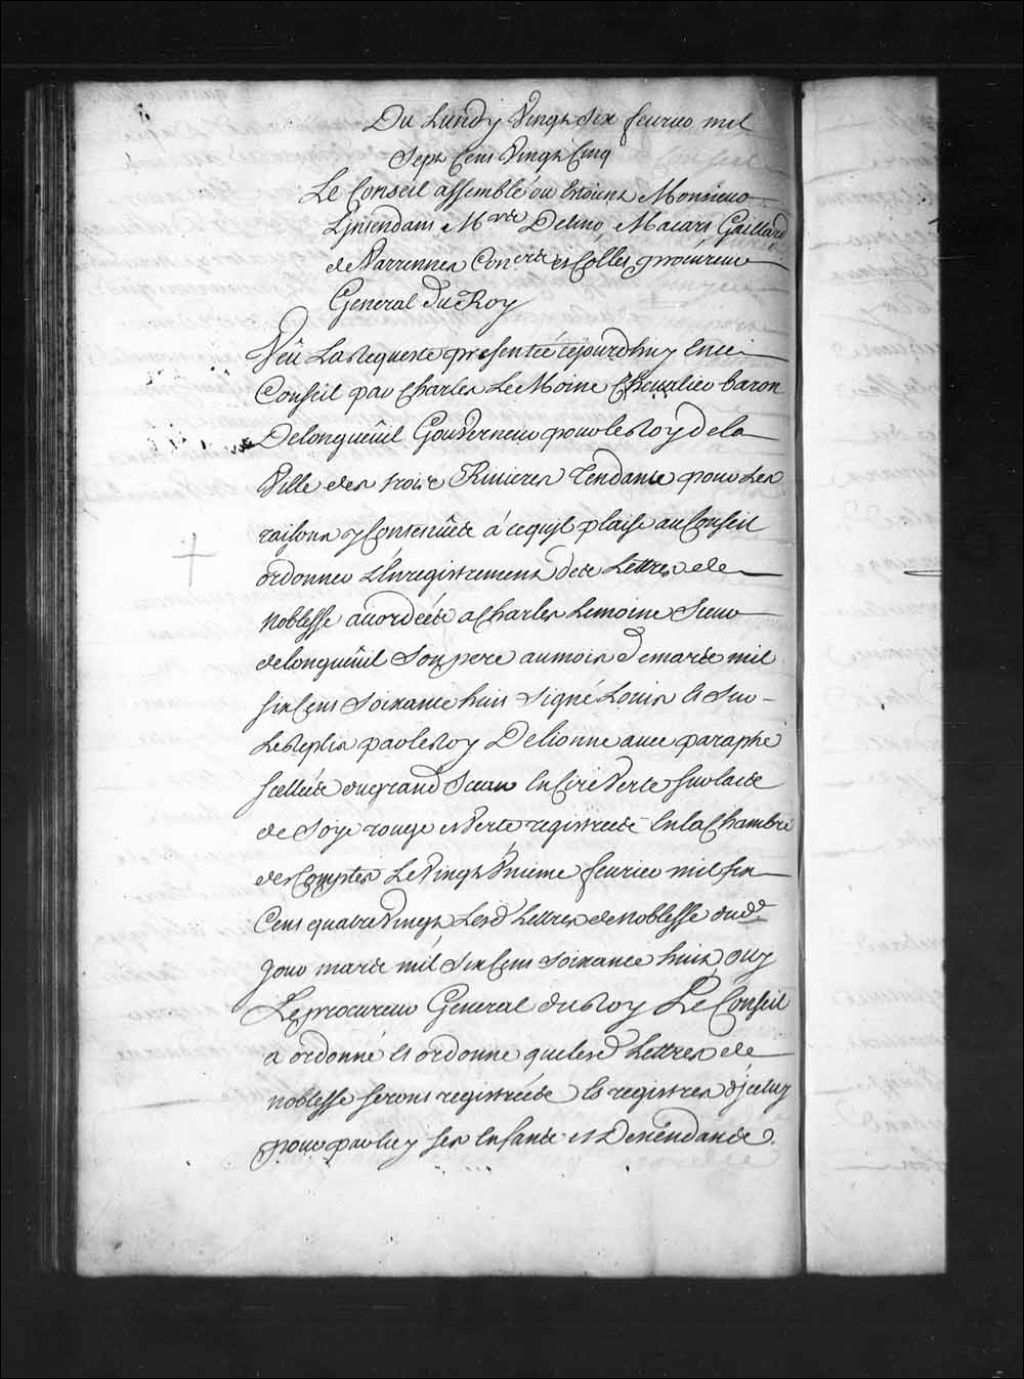 Du Lundy Vingt Six feurier mil
Sept Cens Vingt Cinq
Le Conseil assemblé ou Estoient Monsieur
L'jntendant Mes Delino, Macart Gaillard
de Varennes Coners et Collet procureur
General du Roy
Veû La Requeste presentée cejourdhuy En ce
Conseil par Charles Le Moine Cheualier baron
De longueüil Gouverneur pour le Roy de la
Ville des trois Riuieres Tendante pour Les
raisons y Contenües à cequ'jl plaise au Conseil
ordonner L'Enregistrement des Lettres de
noblesse accordées a Charles Lemoine Sieur
de longueüil Son pere au mois de mars mil
six Cens Soixante huit Signé Louis Et Sur
Le Replis par le Roy De lionne auec paraphe
scellées du grand Sceau En Cire Verte sur lacs
de Soye rouge et Verte registrées En la Chambre
des Comptes Le Vingt Vnieme feurier mil six
Cens quatre Vingt Lesd. Lettres de noblesse dud.
jour mars mil Six Cens Soixante huit, ouy
Le procureur General du Roy Le Conseil
a ordonné Et ordonne que lesd Lettres de
noblesse seront registrées Es registres d'jceluy
pour par luy ses Enfants et Descendants